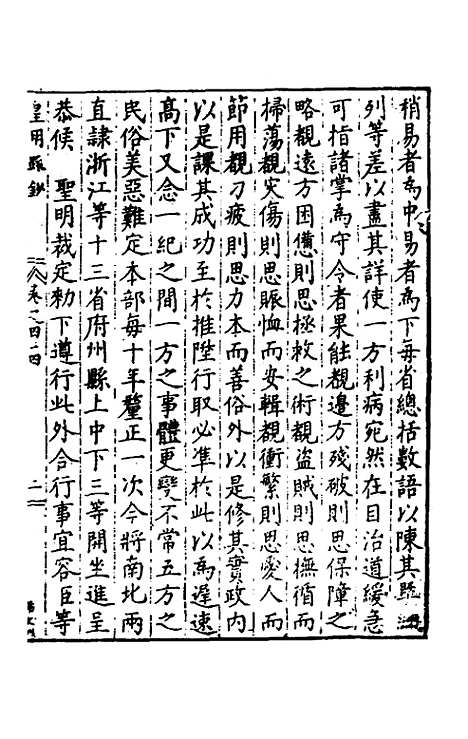 稍易者為中易者為下每省總括數語以陳其
列等差以盡其詳使一方利病宛然在目治道緩急
可指諸掌為守令者果能覩邊方殘破則思保障之
略覩遠方困憊則思拯救之術覩盜賊則思撫循而
掃蕩覩災傷則思賑恤而安輯覩衝繁則思愛人而
節用覩刀疲則思力本而善俗外以是修其實政内
以是課其成功至於推陞行取必準於此以為遲速
高下又念一紀之間一方之事體更變不常五方之
民俗美惡難定本部每十年釐正一次今將南北兩
直隷浙江等十三省府州縣上中下三等開坐進呈
恭候　聖明裁定勑下遵行此外合行事宜容臣等
皇明疏鈔
卷之四十四
二